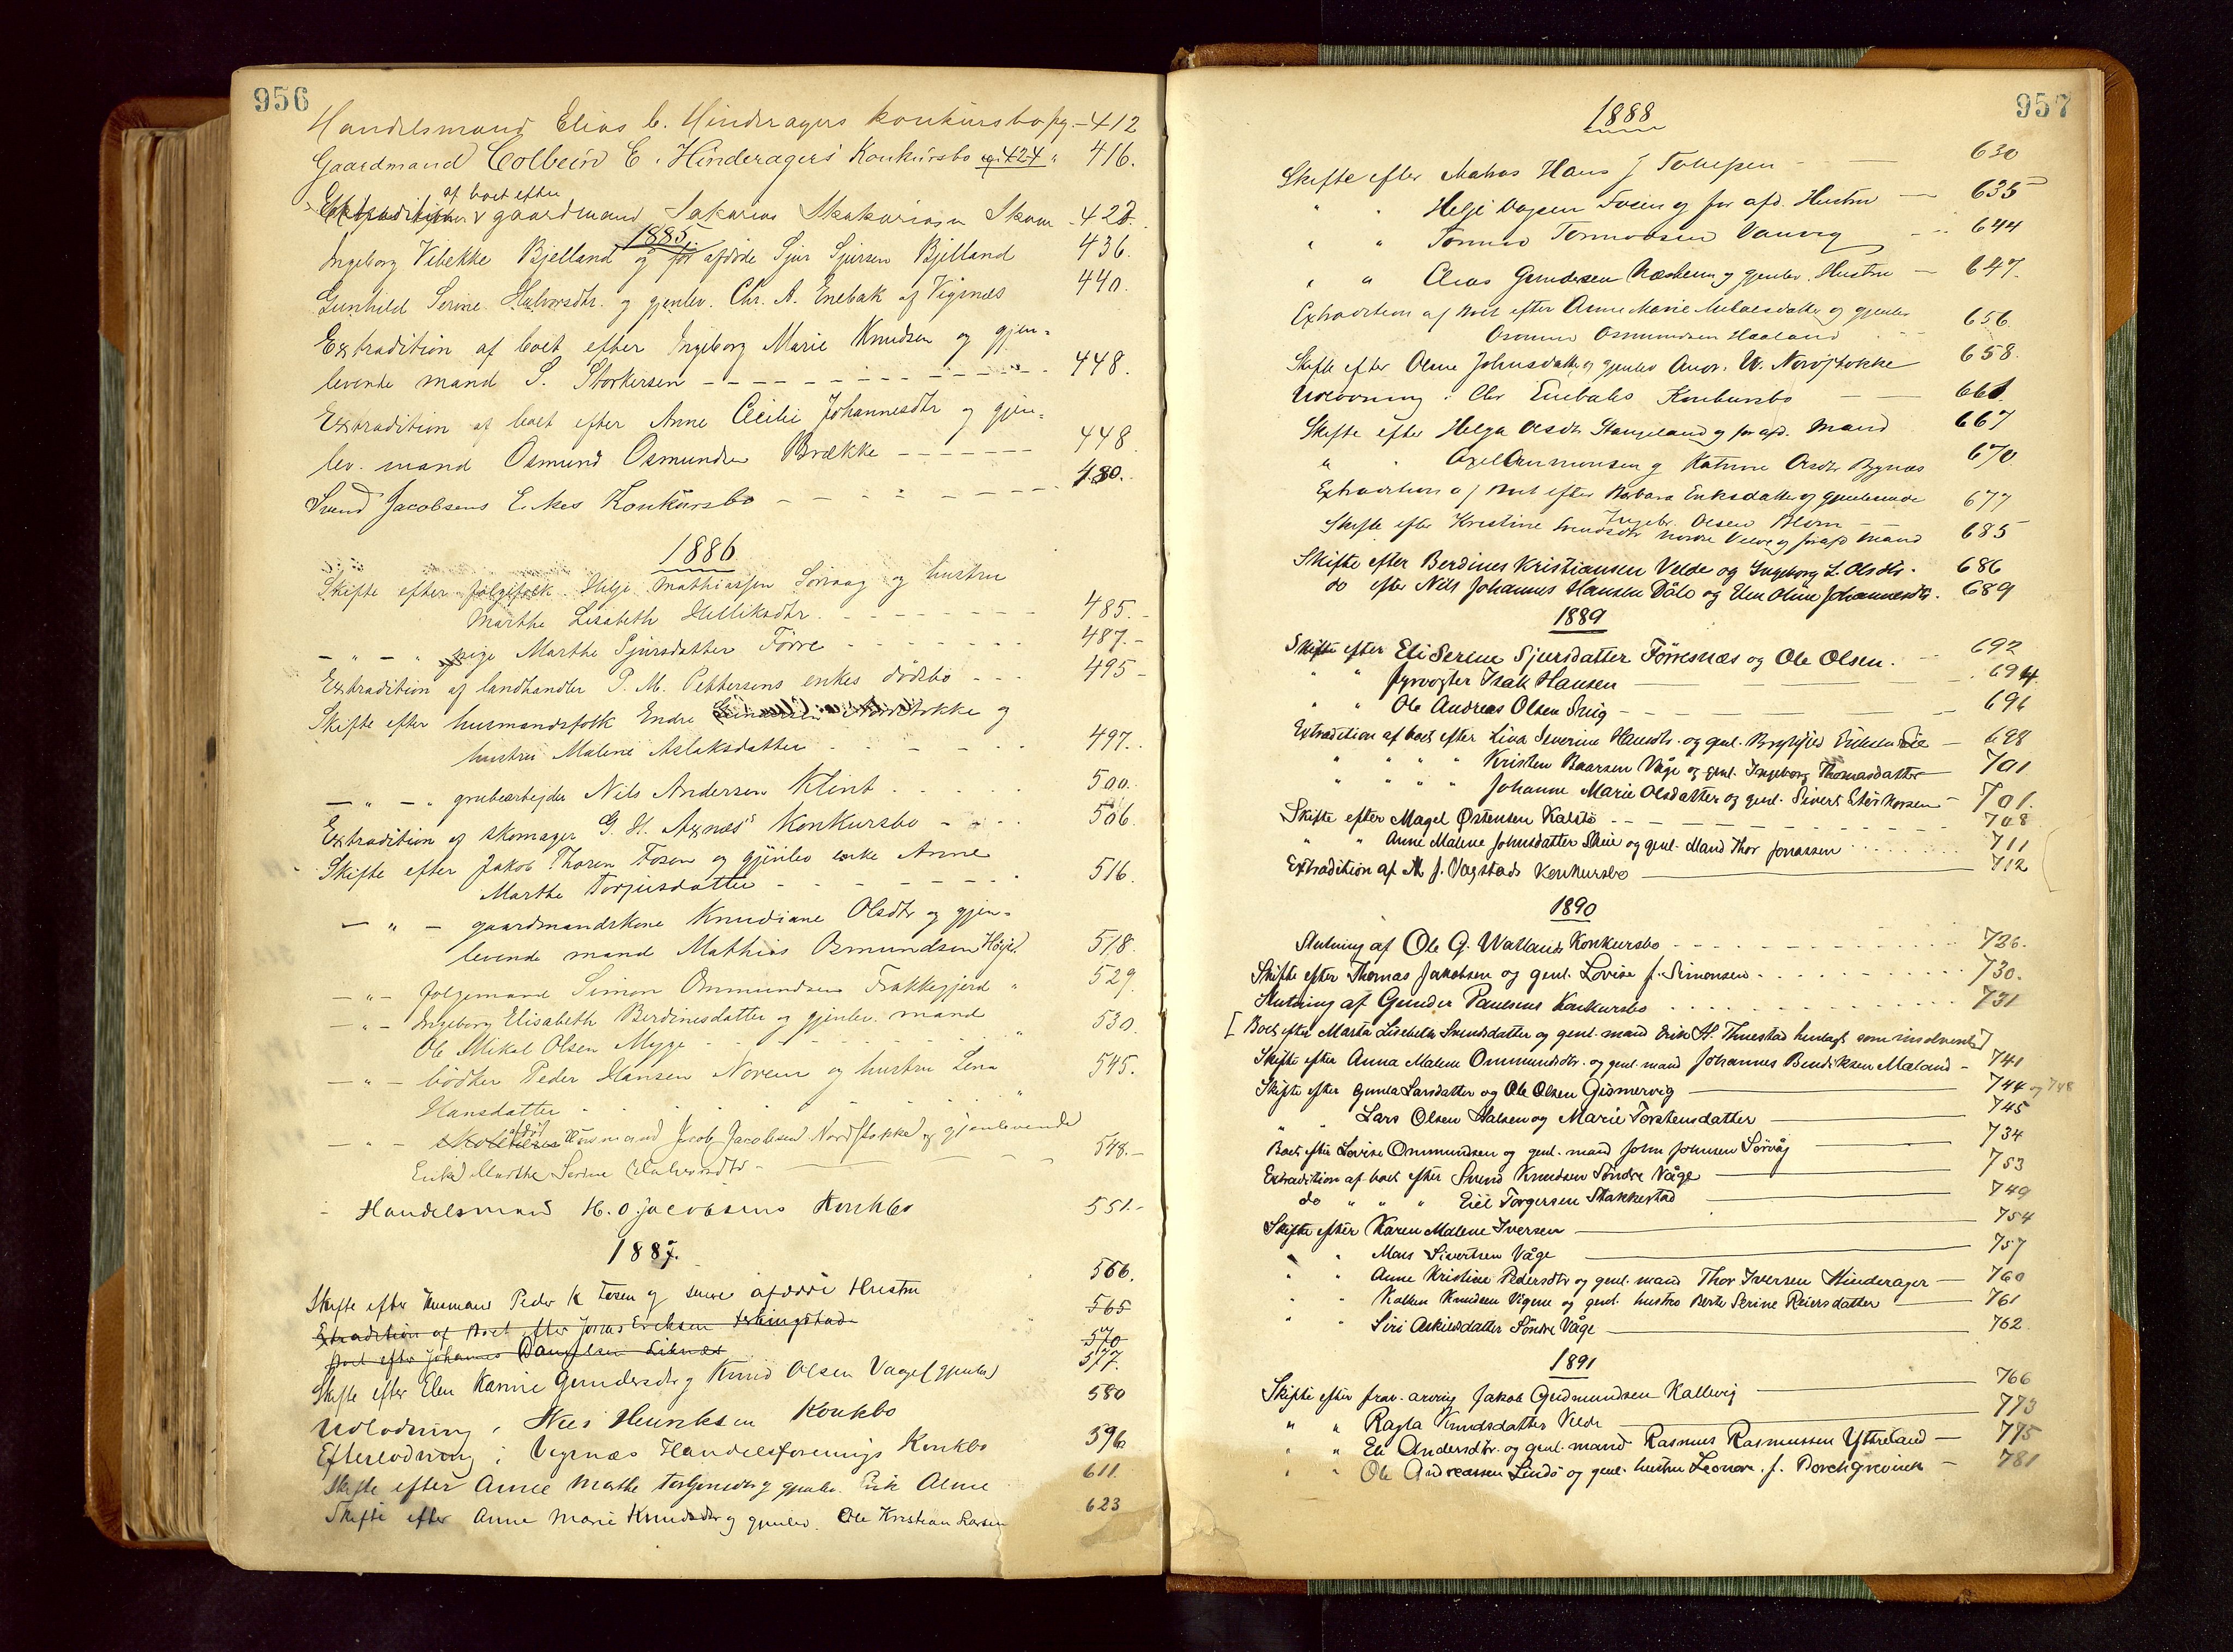 956
Handelsmand Elias C. Hinderagers konkursbo pg. - 412
Gaardmand Colbein E. Hinderagers Konkursbo og 424 " 416.
af boet efter
Extradition gaardmand Sakarias Skakariasn - 427.
1885
Ingeborg Vibekke Bjelland og før afdøde Sjur Sjursen Bjelland 436.
Gunhild Serine Halvorsdtr. og gjenlev. Chr. A. Enebak af Vigsnæs 440.
Extradition af boet efter Ingeborg Marie Knudsen og gjen-
levende mand S. Storkersen - - - 448.
Extradition af boet efter Anne Cecilie Johannesdtr og gjen-
lev. mand Osmund Osmundsen Brække - - - 448
Svend Jacobsens Enkes Konkursbo - - - 480.
1886
Skifte efter følgefolk Helge Mathiassen Sørvaag og hustru
Marthe Lisabeth Helliksdtr. - - - 485.-
- " - " pige Marthe Sjursdatter Førre - - - 487.-
Extradition af landhandler P. M. Pettersens enkes dødsbo - - - 495-
Skifte efter husmandsfolk Endre Nordstokke og
hustru Malene Aslaksdatter - - - 497.
- " - " grubearbejder Nils Andersen Klint - - - 500.
Extradition af skomager G. H. Axnæs' konkursbo - - - 506.
Skifte efter Jakob Thorsen Fosen og gjenlev enke Anne
Marthe Torjusdatter - - - 516.
- " - gaardmandskone Knudiane Olsdtr og gjen-
levende mand Mathias Osmundsen 518.
- " - følgemand Simon Ommundsen Frakkegjerd " 529
- " - Ingeborg Elisabeth Berdinesdatter og gjenlev. mand
Ole Mikal Olsen Mygge - - - 530.
- " - bødker Peder Hansen Noreim og hustru Lena 545.
Hansdatter
- " - Husmand Jacob Jacobsen Nordstokke og gjenlevende
Enke Marthe Serine Halvorsdtr - 548.-
- Handelsmand H. O. Jacobsens Konkbo 551.-
1887.
Skifte efter Husmand Peder K Fosen og afdøde Hustru 566.
Extradition af Boet efter Jonas Eriksen 565
Boet efter Johannes Danielsen Liknæs 570
Skifte efter Elen Karine Gundersdtr og Knud Olsen Vaage (gjenlev) 577.
Udlodning i Nils Henriksen Konkbo 580
Efterlodning i Vigsnæs Handelsforenings Konkbo 596
Skifte efter Anne Marthe Torgersdtr og gjenlev. Erik Alme 611.
Skifte efter Anne Marie Knudsdtr og gjenlev. Ole Kristian Larsen 623
957
1888
Skifte efter Matros Hans J Tollefsen - 630
" " Helge Dagsen Fosen og før afd. Hustru - 635
" " Tormod Tormodsen Vanvig - 644
" " Elias Gundersen Næsheim og gjenlev. Hustru - 647.
Extradition af Boet efter Anne Marie og gjenlev
Osmund Osmundsen Haaland 656.
Skifte efter Olene Johnsdatter og gjenlev Andr. W. Nordstokke 658.
Udlodning i Chr Enebaks Konkursbo - 661.
Skifte efter Helga Olsdtr Stangeland og før afd. Mand 667
" " Axel Ammonsen og Katrine Olsdtr Bygnæs 670.
Extradition af Boet efter Barbara Eriksdatter og gjenlevende 677
Ingebr. Olsen Blom
Skifte efter Kristine Svendsdtr Nordre Velde og før afd Mand 685
Skifte efter Berdines Kristiansen Velde og Ingeborg L. Olsdtr. 686
do efter Nils Johannes Hansen Døle og Elen Oline Johannesdtr. 689
1889
Skifte efter Eli Serine Sjursdatter Førresnæs og Ole Olsen. - 692
" " fyrvogter Isak Hansen - 694.
" " Ole Andreas Olsen Snig - 696
Extradition af boet efter Lina Severine Hansdtr. og genl. - 698
" " " " Kristen Baarsen Våge og genl. Ingeborg Thomasdatter - 701
" " " " Johanne Marie Olsdatter og genl. Sivert Storkorsen - 701.
Skifte efter Magel Østensen Kalstø - 708
" " Anne Malene Johnsdatter Skeie og genl. Mand Thor Jonassen 711
Extradition af M J. Vagstads konkursbo - 712
1890
Slutning af Ole G. Watlands Konkursbo - 726.
Skifte efter Thomas Jakobsen og genl. Lovise f. Simonsen - 730.
Slutning af Gunder Paulsens konkursbo - 731
[ Boet efter Marta Lisebeth Svendsdatter og genl. mand Erik H. Thuestad henlagt som insolvent ]
Skifte efter Anna Malene Ommundsdtr. og genl. mand Johannes Bendiksen Mæland - 741
Skifte efter Gunla Larsdatter og Ole Olsen Gismervig - 744 og 748
" " Lars Olsen Halsen og Marie Torstensdatter - 745
Boet efter Lovise Ommundsen og genl. mand John Johnsen Sørvåg 734
Extradition af boet efter Svend Knudsen Søndre Våge - 753
do " " " Eiel Torgersen Stakkestad - 749
Skifte efter Karen Malene Iversen - 754
" " Mons Sivertsen Våge - 757
" " Anne Kristine Pedersdtr og genl. mand Thor Iversen Hinderager - 760
" " Kolben Knudsen Vigene og genl. hustro Berte Serine Reiersdatter - 761
" " Siri Askildsdatter Søndre Våge - 762.
1891
Skifte efter frav. arving Jakob Gudmundsen Kallevig - 766
" " Ragla Knudsdatter Velde - 773
" " Eli Andersdtr. og genl. mand Rasmus Rasmussen Ytreland - 775
" " Ole Andreassen Lindø og genl. hustru Leonore f. Borchgrevink - 781